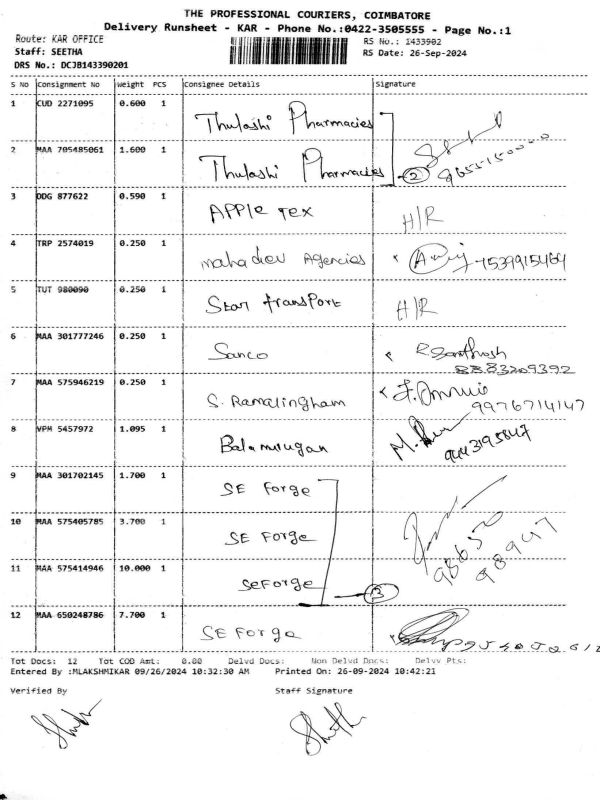 THE PROFESSIONAL COURIERS, COIMBATORE
Delivery Runsheet - KAR - Phone No.:0422-3505555 - Page No.:1
Route: KAR OFFICE
RS No.: 1433902
Staff: SEETHA
RS Date: 26-Sep-2024
DRS No.: DCJB143390201
S No Consignment No Weight PCS Consignee Details Signature
1 CUD 2271095 0.600 1 Thulashi Pharmacies
2 MAA 705485061 1.600 1 Thulashi Pharmacies 2
3 DDG 877622 0.590 1 APPle Tex H/R
4 TRP 2574019 0.250 1 mahadev Agencies
5 TUT 980090 0.250 1 Star transport H/R
6 MAA 301777246 0.250 1 Sanco
8883209392
7 MAA 575946219 0.250 1 S. Ramalingham
9976714147
8 VPM 5457972 1.095 1 Balamurugan
9443195847
9 MAA 301702145 1.700 1 SE Forge
10 MAA 575405785 3.700 1 SE Forge
98650
98947
11 MAA 575414946 10.000 1 SeForge 3
12 MAA 650248786 7.700 1 SE Forge
Tot Docs: 12 Tot COB Amt: 0.00 Delvd Docs: Non Delvd Docs: Delvy Pts:
Entered By :MLAKSHMIKAR 09/26/2024 10:32:30 AM Printed On: 26-09-2024 10:42:21
Verified By Staff Signature